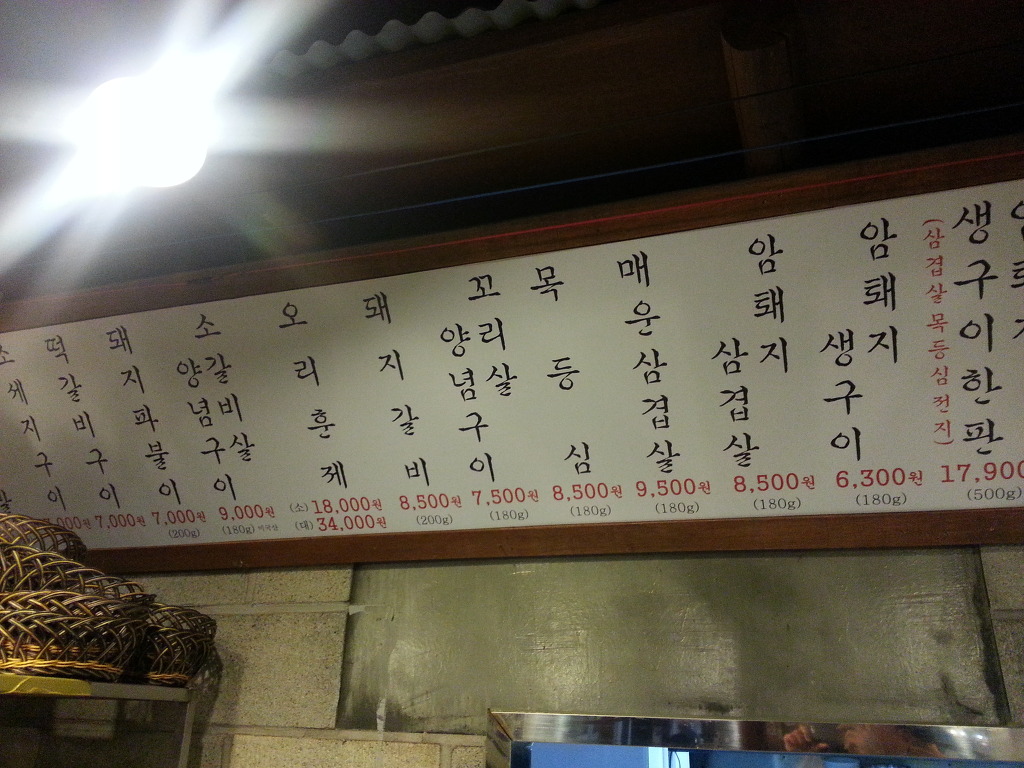 소세지구이
떡갈비구이 7,000원
돼지파불이 7,000원 (200g)
소갈비살 양념구이 9,000원 (180g)
오리훈제 (소) 18,000원
(대) 34,000원
돼지갈비 8,500원 (200g)
꼬리살 양념구이 7,500원 (180g)
목등심 8,500원 (180g)
매운삼겹살 9,500원 (180g)
암퇘지 삼겹살 8,500원 (180g)
암퇘지 생구이 6,300원 (180g)
(삼겹살목등심전지)
생구이한판 17,900 (500g)